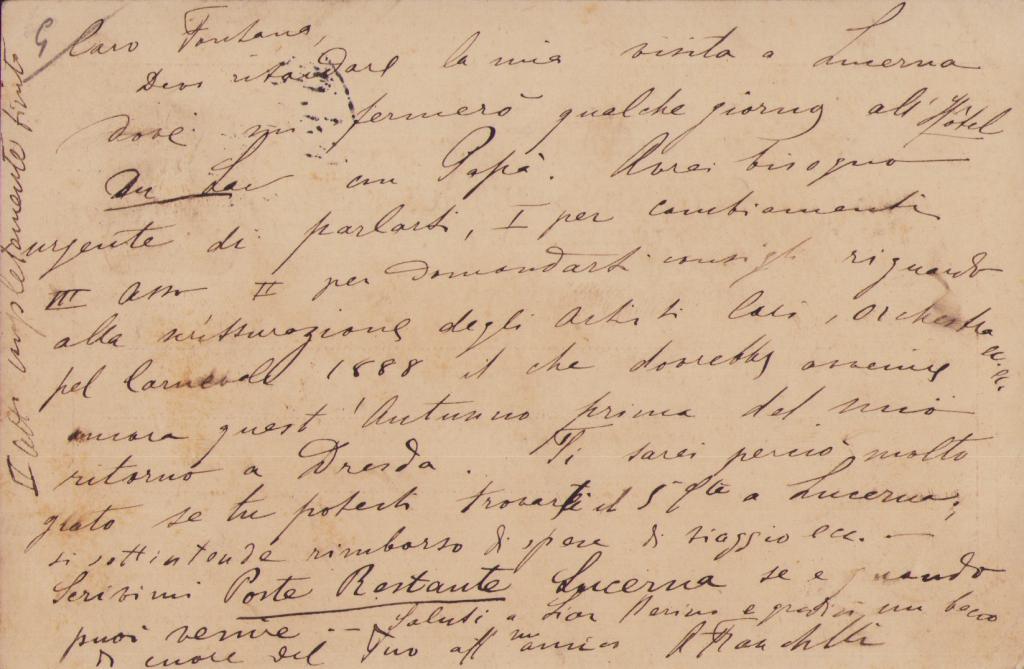 Caro Fontana,
Devo ritardare la mia visita a Lucerna
dove mi fermerò qualche giorno all'Hôtel
Du Lac con Papà. Avrei bisogno
urgente di parlarti, I per cambiamenti
III atto II per domandarti consigli riguardo
alla scritturazione degli artisti Cori, orchestra ecc. ecc.
pel Carnevale 1888 il che dovrebbe avvenire
ancora quest'Autunno prima del mio
ritorno a Dresda. Ti sarei perciò molto
grato se tu potessi trovarti il 5 a Lucerna;
si sottintende rimborso di spese di viaggio ecc. —
Scrivimi Poste Restante Lucerna se e quando
puoi venire. — Saluti a e gradisci un bacio
di cuore del Tuo aff.mo amico A Franchetti
II atto completamente finito